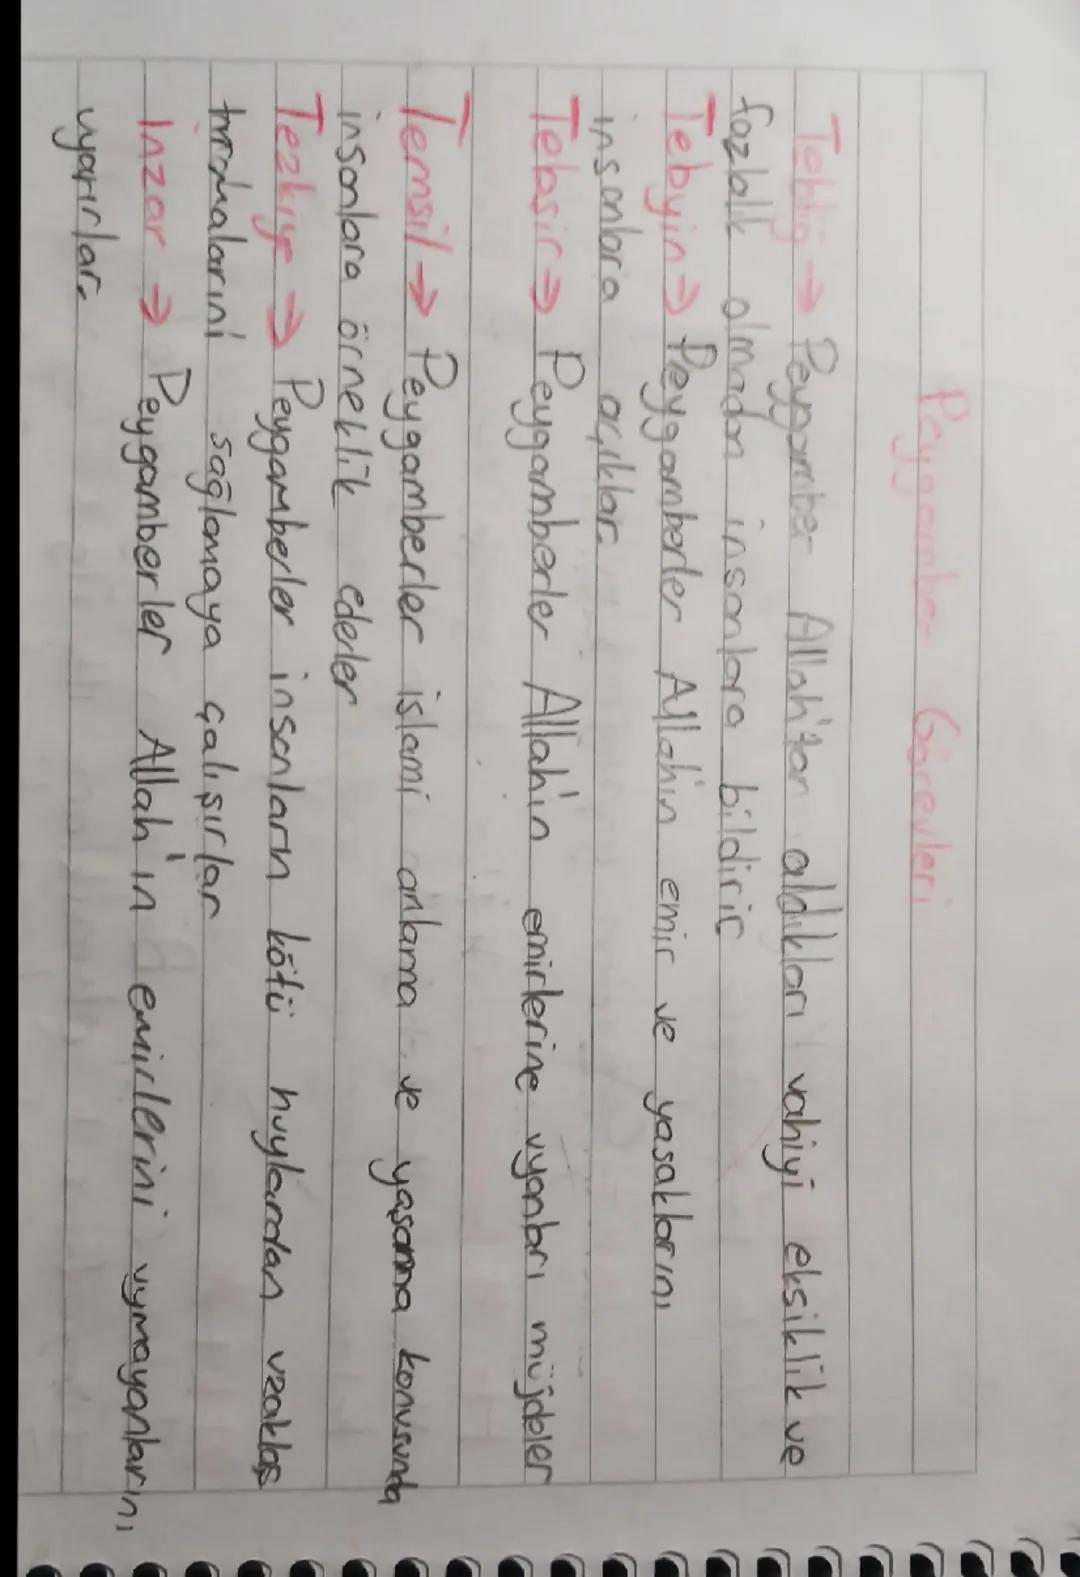 Peygamber Görevleri
Tebliğ → Peygamber Allah'tan aldıkları vahiyi eksiklik ve
fazlalık olmadan insanlara bildirir
Tebyin → Peygamberler Allah'ın emir ve yasaklarını
insanlara açıklar.
Tebşir → Peygamberler Allah'ın emirlerine uyanları müjdeler
Temsil → Peygamberler islami anlama ve yaşama konusunda
insanlara örneklik ederler
Tezkiye → Peygamberler insanların kötü huylardan uzaklaş
tırmalarını sağlamaya çalışırlar
İnzar → Peygamberler Allah'ın emirlerini uymayanlarını
uyarırlar.